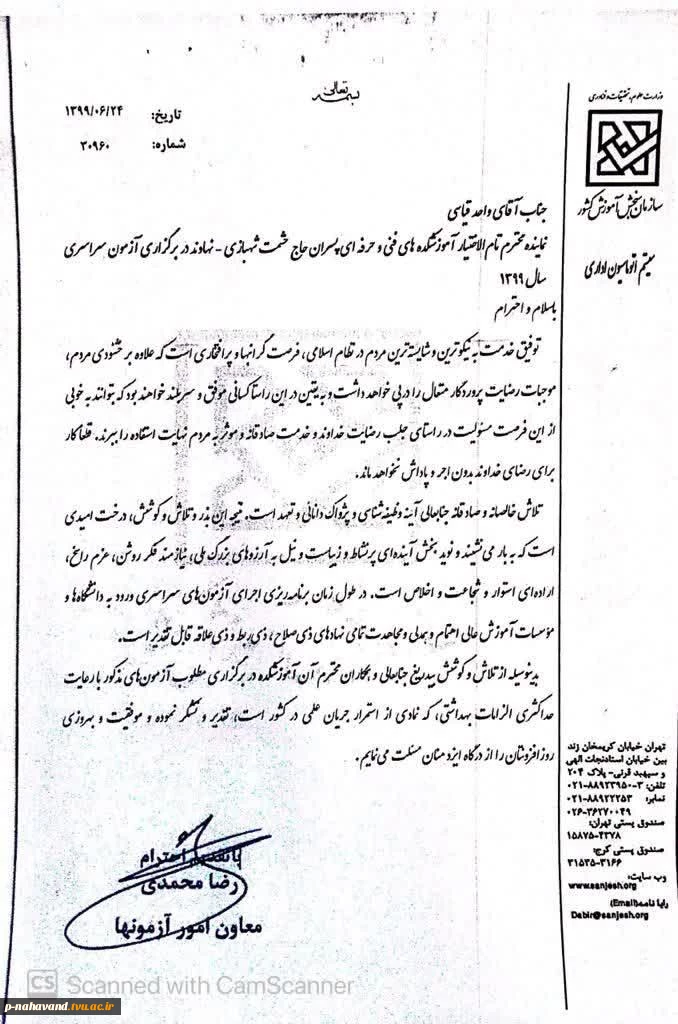 بسمه تعالی
تاریخ: ۱۳۹۹/۰۶/۲۴
شماره: ۳۰۹۶۰
وزارت علوم، تحقیقات و فناوری
سازمان سنجش آموزش کشور
سیستم اتوماسیون اداری
جناب آقای واحد قیاسی
نماینده محترم تام الاختیار آموزشکده های فنی و حرفه ای پسران حاج حشمت شهبازی - نهاوند در برگزاری آزمون سراسری
سال ۱۳۹۹
باسلام و احترام
توفیق خدمت به نیکوترین و شایسته ترین مردم در نظام اسلامی، فرصت گرانبها و پرافتخاری است که علاوه بر خشنودی مردم،
موجبات رضایت پروردگار متعال را در پی خواهد داشت و به یقین در این راستا کسانی موفق و سربلند خواهند بود که بتوانند به خوبی
از این فرصت مسئولیت در راستای جلب رضایت خداوند و خدمت صادقانه و موثر به مردم نهایت استفاده را ببرند. قطعا کار
برای رضای خداوند بدون اجر و پاداش نخواهد ماند.
تلاش خالصانه و صادقانه جنابعالی آینه وظیفه شناسی و پژواک دانائی و تعهد است. نتیجه این بذر و تلاش و کوشش، درخت امیدی
است که به بار می نشیند و نوید بخش آینده ای پرنشاط و زیباست و نیل به آرزوهای بزرگ ملی، نیازمند فکر روشن، عزم راسخ،
اراده ای استوار و شجاعت و اخلاص است. در طول زمان برنامه ریزی اجرای آزمون های سراسری ورود به دانشگاه ها و
مؤسسات آموزش عالی اهتمام و همدلی و مجاهدت تمامی نهادهای ذی صلاح، ذی ربط و ذی علاقه قابل تقدیر است.
بدینوسیله از تلاش و کوشش بیدریغ جنابعالی و همکاران محترم آن آموزشکده در برگزاری مطلوب آزمون های مذکور با رعایت
حداکثری الزامات بهداشتی، که نمادی از استمرار جریان علمی در کشور است، تقدیر و تشکر نموده و موفقیت و بهروزی
روزافزونتان را از درگاه ایزد منان مسئلت می نمایم.
با تقدیم احترام
رضا محمدی
معاون امور آزمونها
تهران خیابان کریمخان زند
بین خیابان استادنجات الهی
و سپهبد قرنی- پلاک ۲۰۴
تلفن: ۳-۸۸۹۲۳۹۵۰-۰۲۱
نمابر: ۸۸۹۲۲۲۵۳-۰۲۱
۰۲۶-۳۶۲۷۰۰۴۹
صندوق پستی تهران:
۱۵۸۷۵-۴۳۷۸
صندوق پستی کرج:
۳۱۵۳۵-۳۱۶۶
وب سایت:
www.sanjesh.org
رایا نامه(Email)
Dabir@sanjesh.org
CS Scanned with CamScanner
p-nahavand.tvu.ac.ir